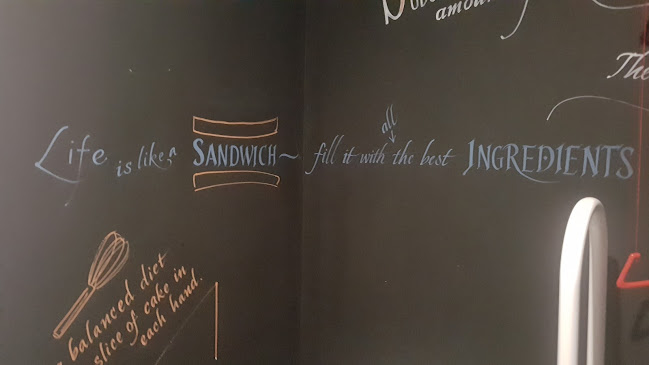 amou
The
all
Life is like a SANDWICH~ fill it with the best INGREDIENTS
balanced diet
slice of cake in
each hand.